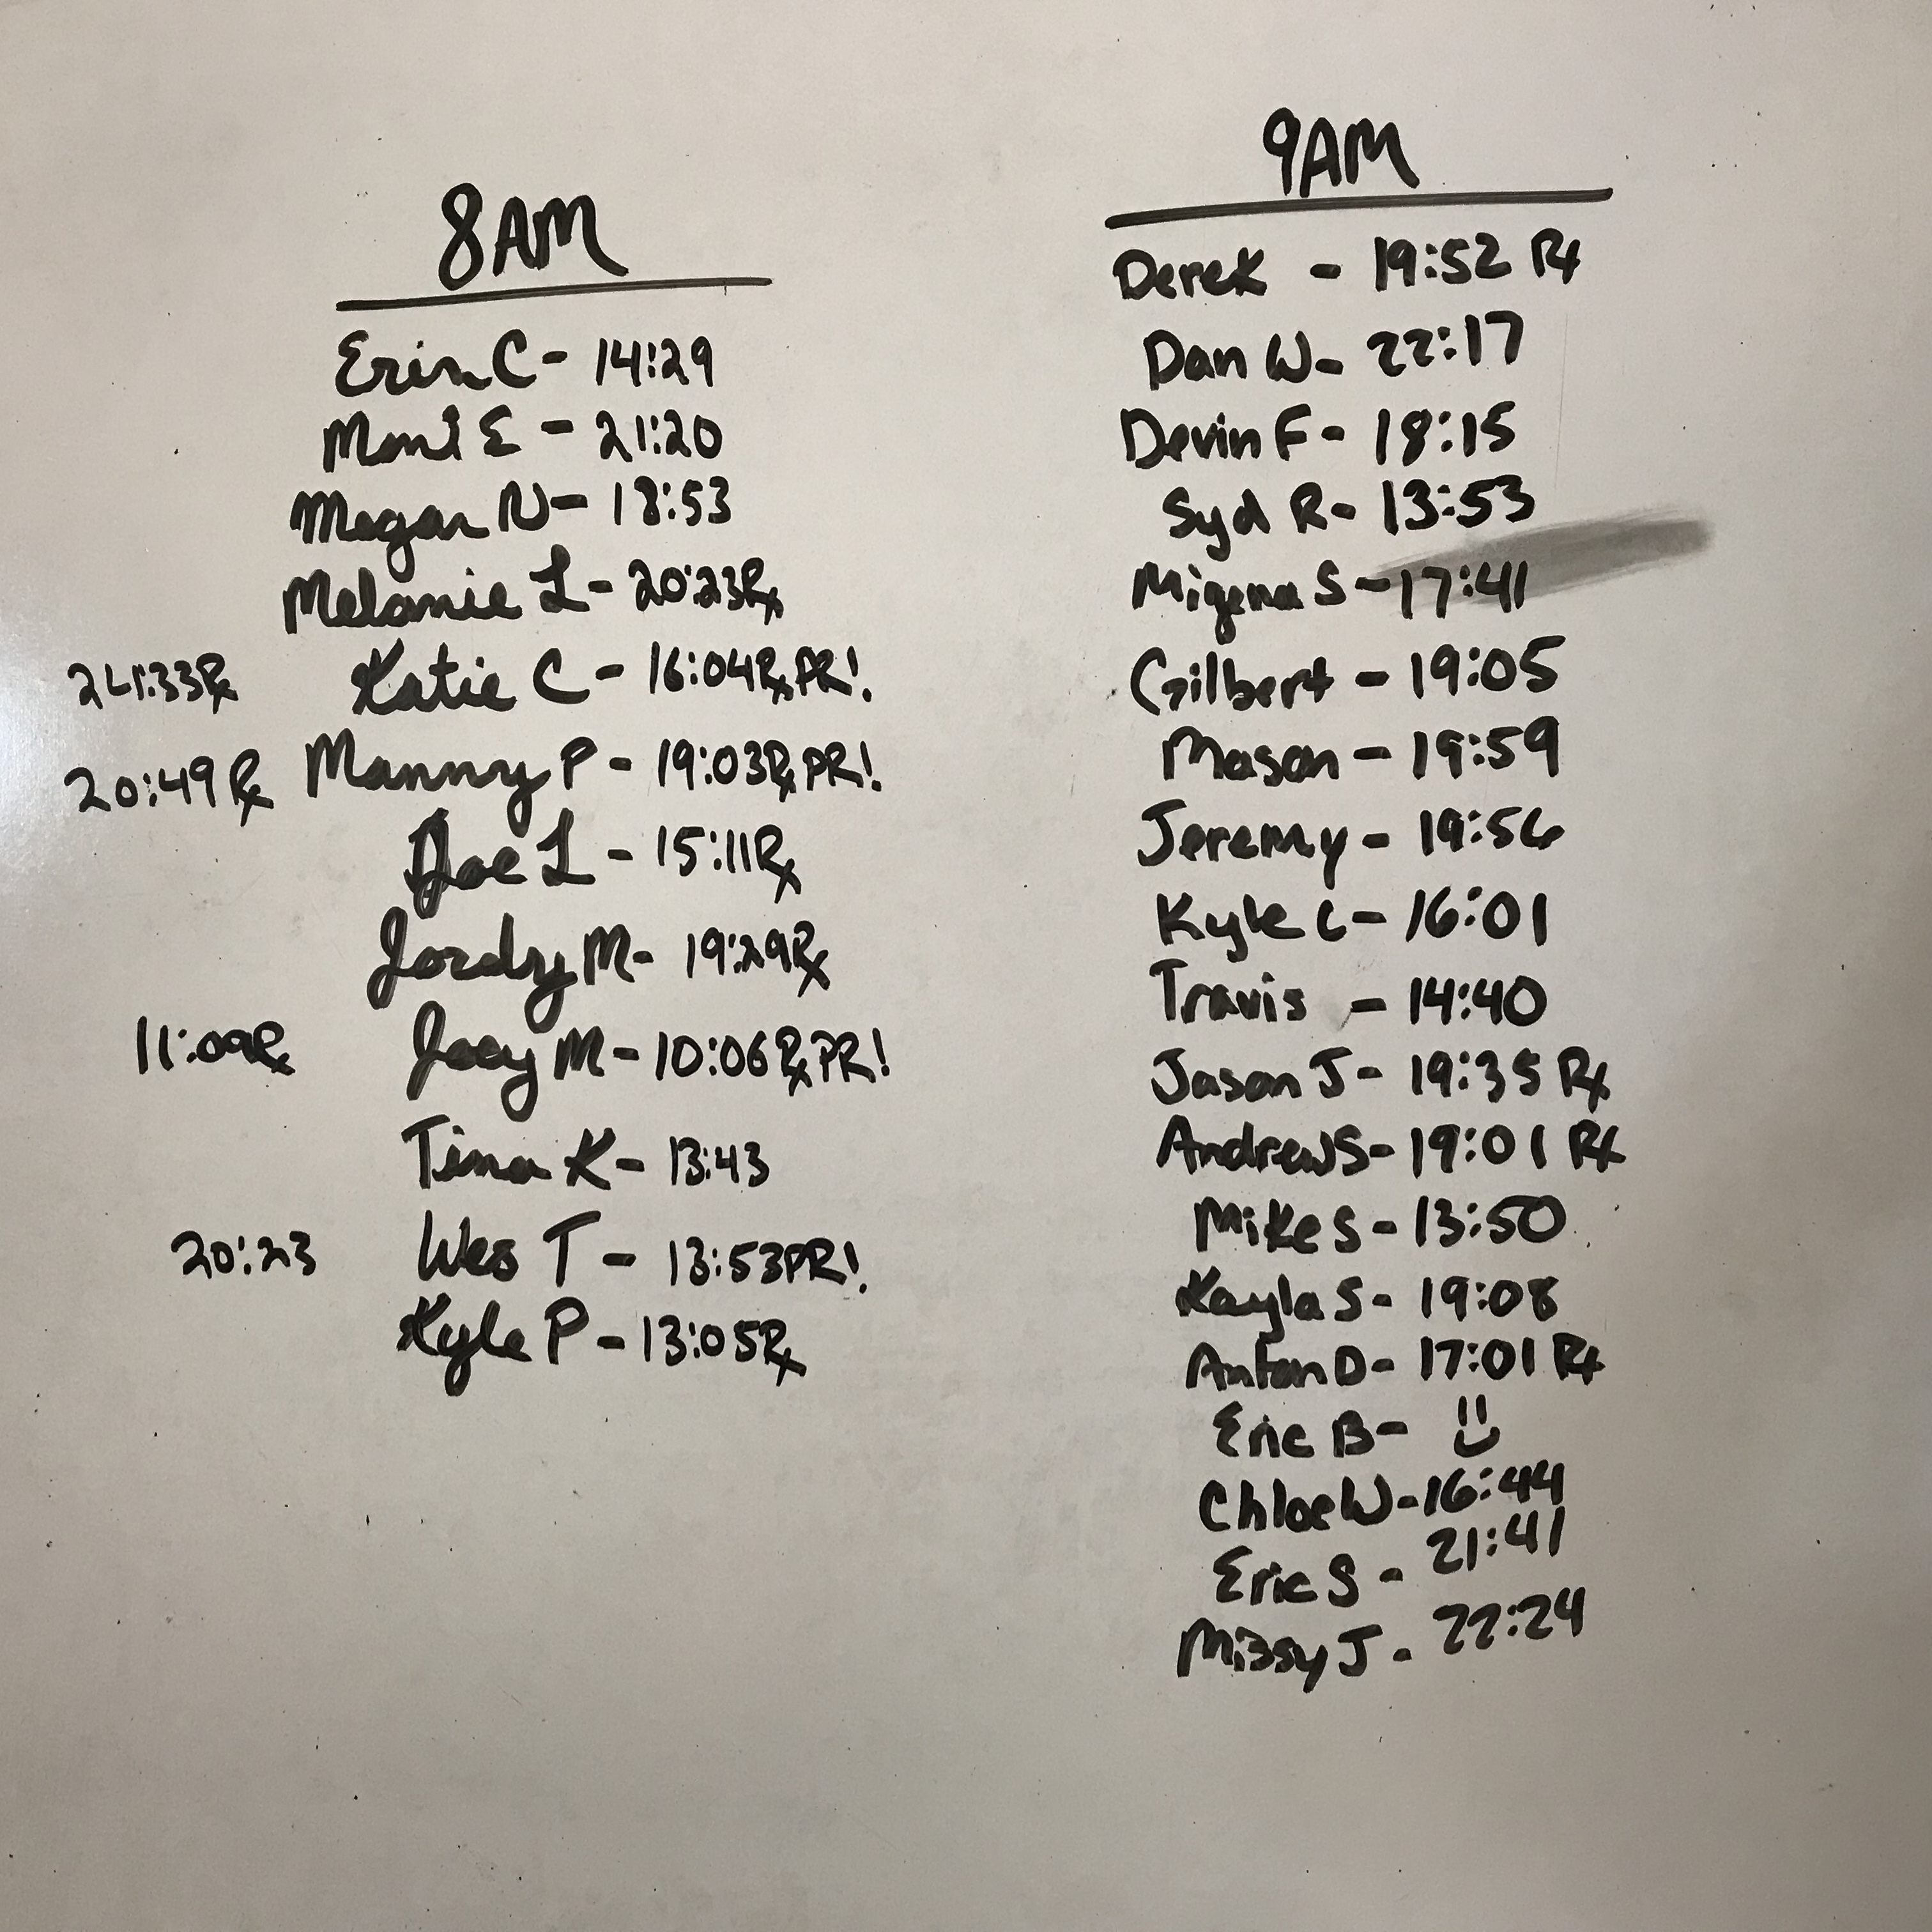 8AM
Erin C - 14:29
Moni E - 21:20
Megan N - 18:53
Melanie L - 20:23Rx
24:33Rx Katie C - 16:04Rx PR!
20:49Rx Manny P - 19:03Rx PR!
Joe L - 15:11Rx
Jordy M - 19:29Rx
11:09Rx Joey M - 10:06Rx PR!
Tina K - 13:43
20:23 Wes T - 13:53 PR!
Kyle P - 13:05Rx
9AM
Derek - 19:52 Rx
Dan W - 22:17
Devin F - 18:15
Syd R - 13:53
Migena S - 17:41
Gilbert - 19:05
Mason - 19:59
Jeremy - 19:56
Kyle C - 16:01
Travis - 14:40
Jason J - 19:35 Rx
Andrew S - 19:01 Rx
Mike S - 13:50
Kayla S - 19:08
Anton D - 17:01 Rx
Eric B -
Chloe W - 16:44
Eric S - 21:41
Missy J - 22:24